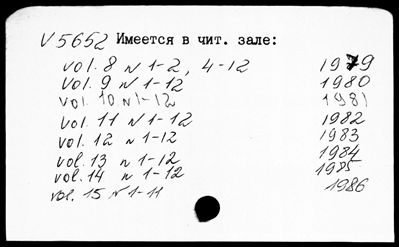 V5652 Имеется в чит. зале:
vol. 8 N 1-2, 4-12 1979
vol. 9 N 1-12 1980
vol. 10 N 1-12 1981
vol. 11 N 1-12 1982
vol. 12 N 1-12 1983
vol. 13 N 1-12 1984
vol. 14 N 1-12 1985
vol. 15 N 1-11 1986